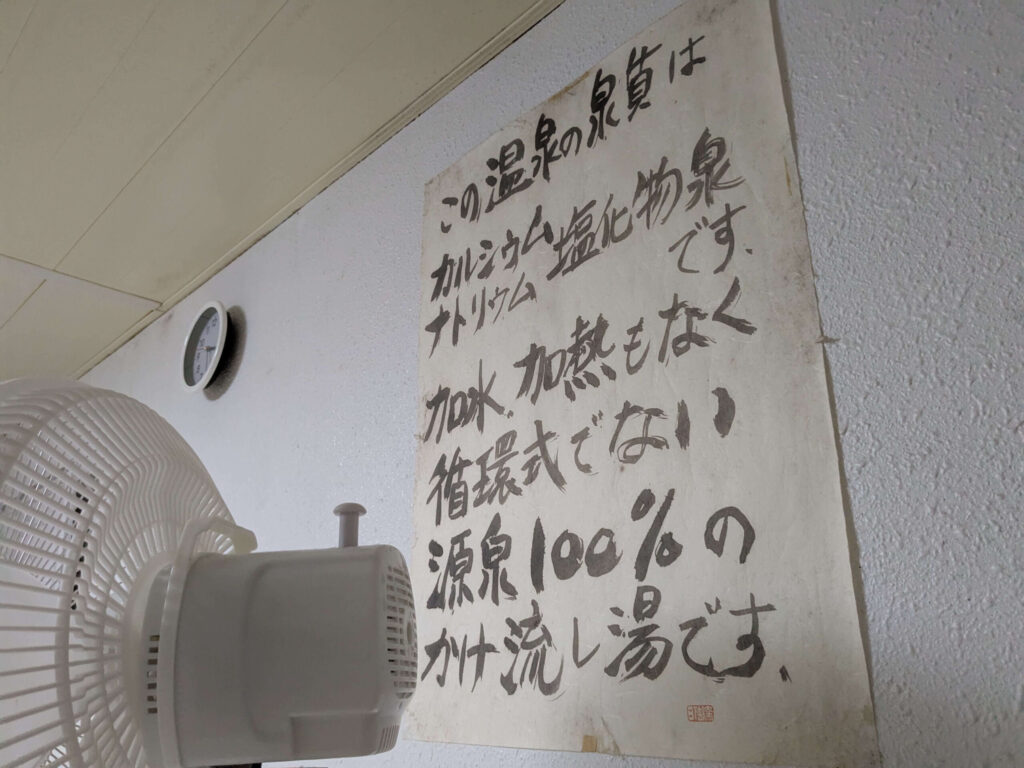 この温泉の泉質は
カルシウム
ナトリウム
塩化物泉
です、
加水、加熱もなく
循環式でない
源泉100%の
かけ流し湯です、